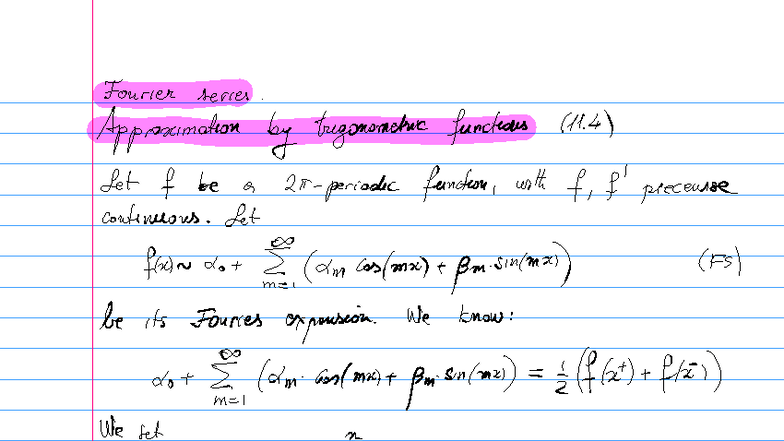 Fourier series.
Approximation by trigonometric functions (11.4)
Let f be a 2π-periodic function, with f, f' piecewise
continuous. Let
f(x) ~ α₀ + ∑_{m=1}^{∞} (α_m cos(mx) + β_m · sin(mx)) (FS)
be its Fourier expansion. We know:
α₀ + ∑_{m=1}^{∞} (α_m · cos(mx) + β_m · sin(mx)) = 1/2 (f(x⁺) + f(x⁻))
We set n